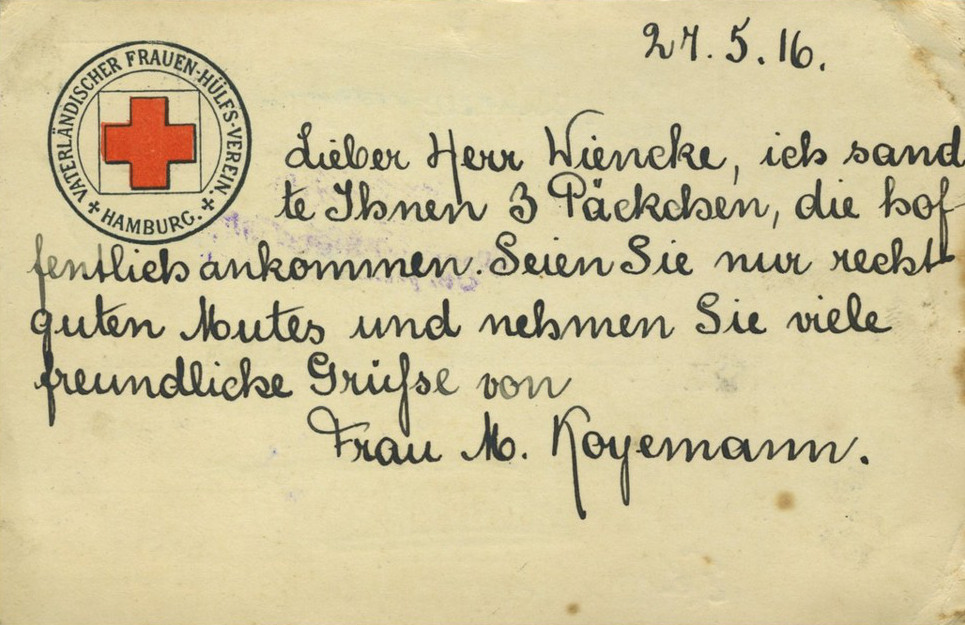 VATERLÄNDISCHER FRAUEN-HÜLFS-VEREIN.
HAMBURG.
27.5.16.
Lieber Herr Wiencke, ich sand
te Ihnen 3 Päckchen, die hof-
fentlich ankommen. Seien Sie nur recht
guten Mutes und nehmen Sie viele
freundliche Grüße von
Frau M. Koyemann.